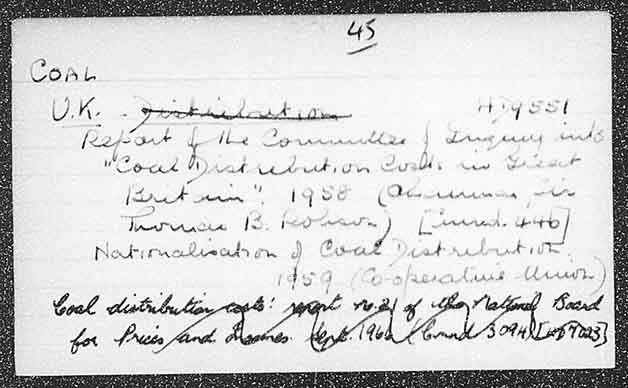 45
COAL
U.K. Distribution HD9551
Report of the Committee of Inquiry into
"Coal Distribution Costs in Great
Britain". 1958 (Chairman, Sir
Thomas B. Robson) [Cmnd. 446]
Nationalisation of Coal Distribution
1959 (Co-operative Union)
Coal distribution costs: report no. 21 of the National Board
for Prices and Incomes. Sept. 1966 (Cmnd 3094)